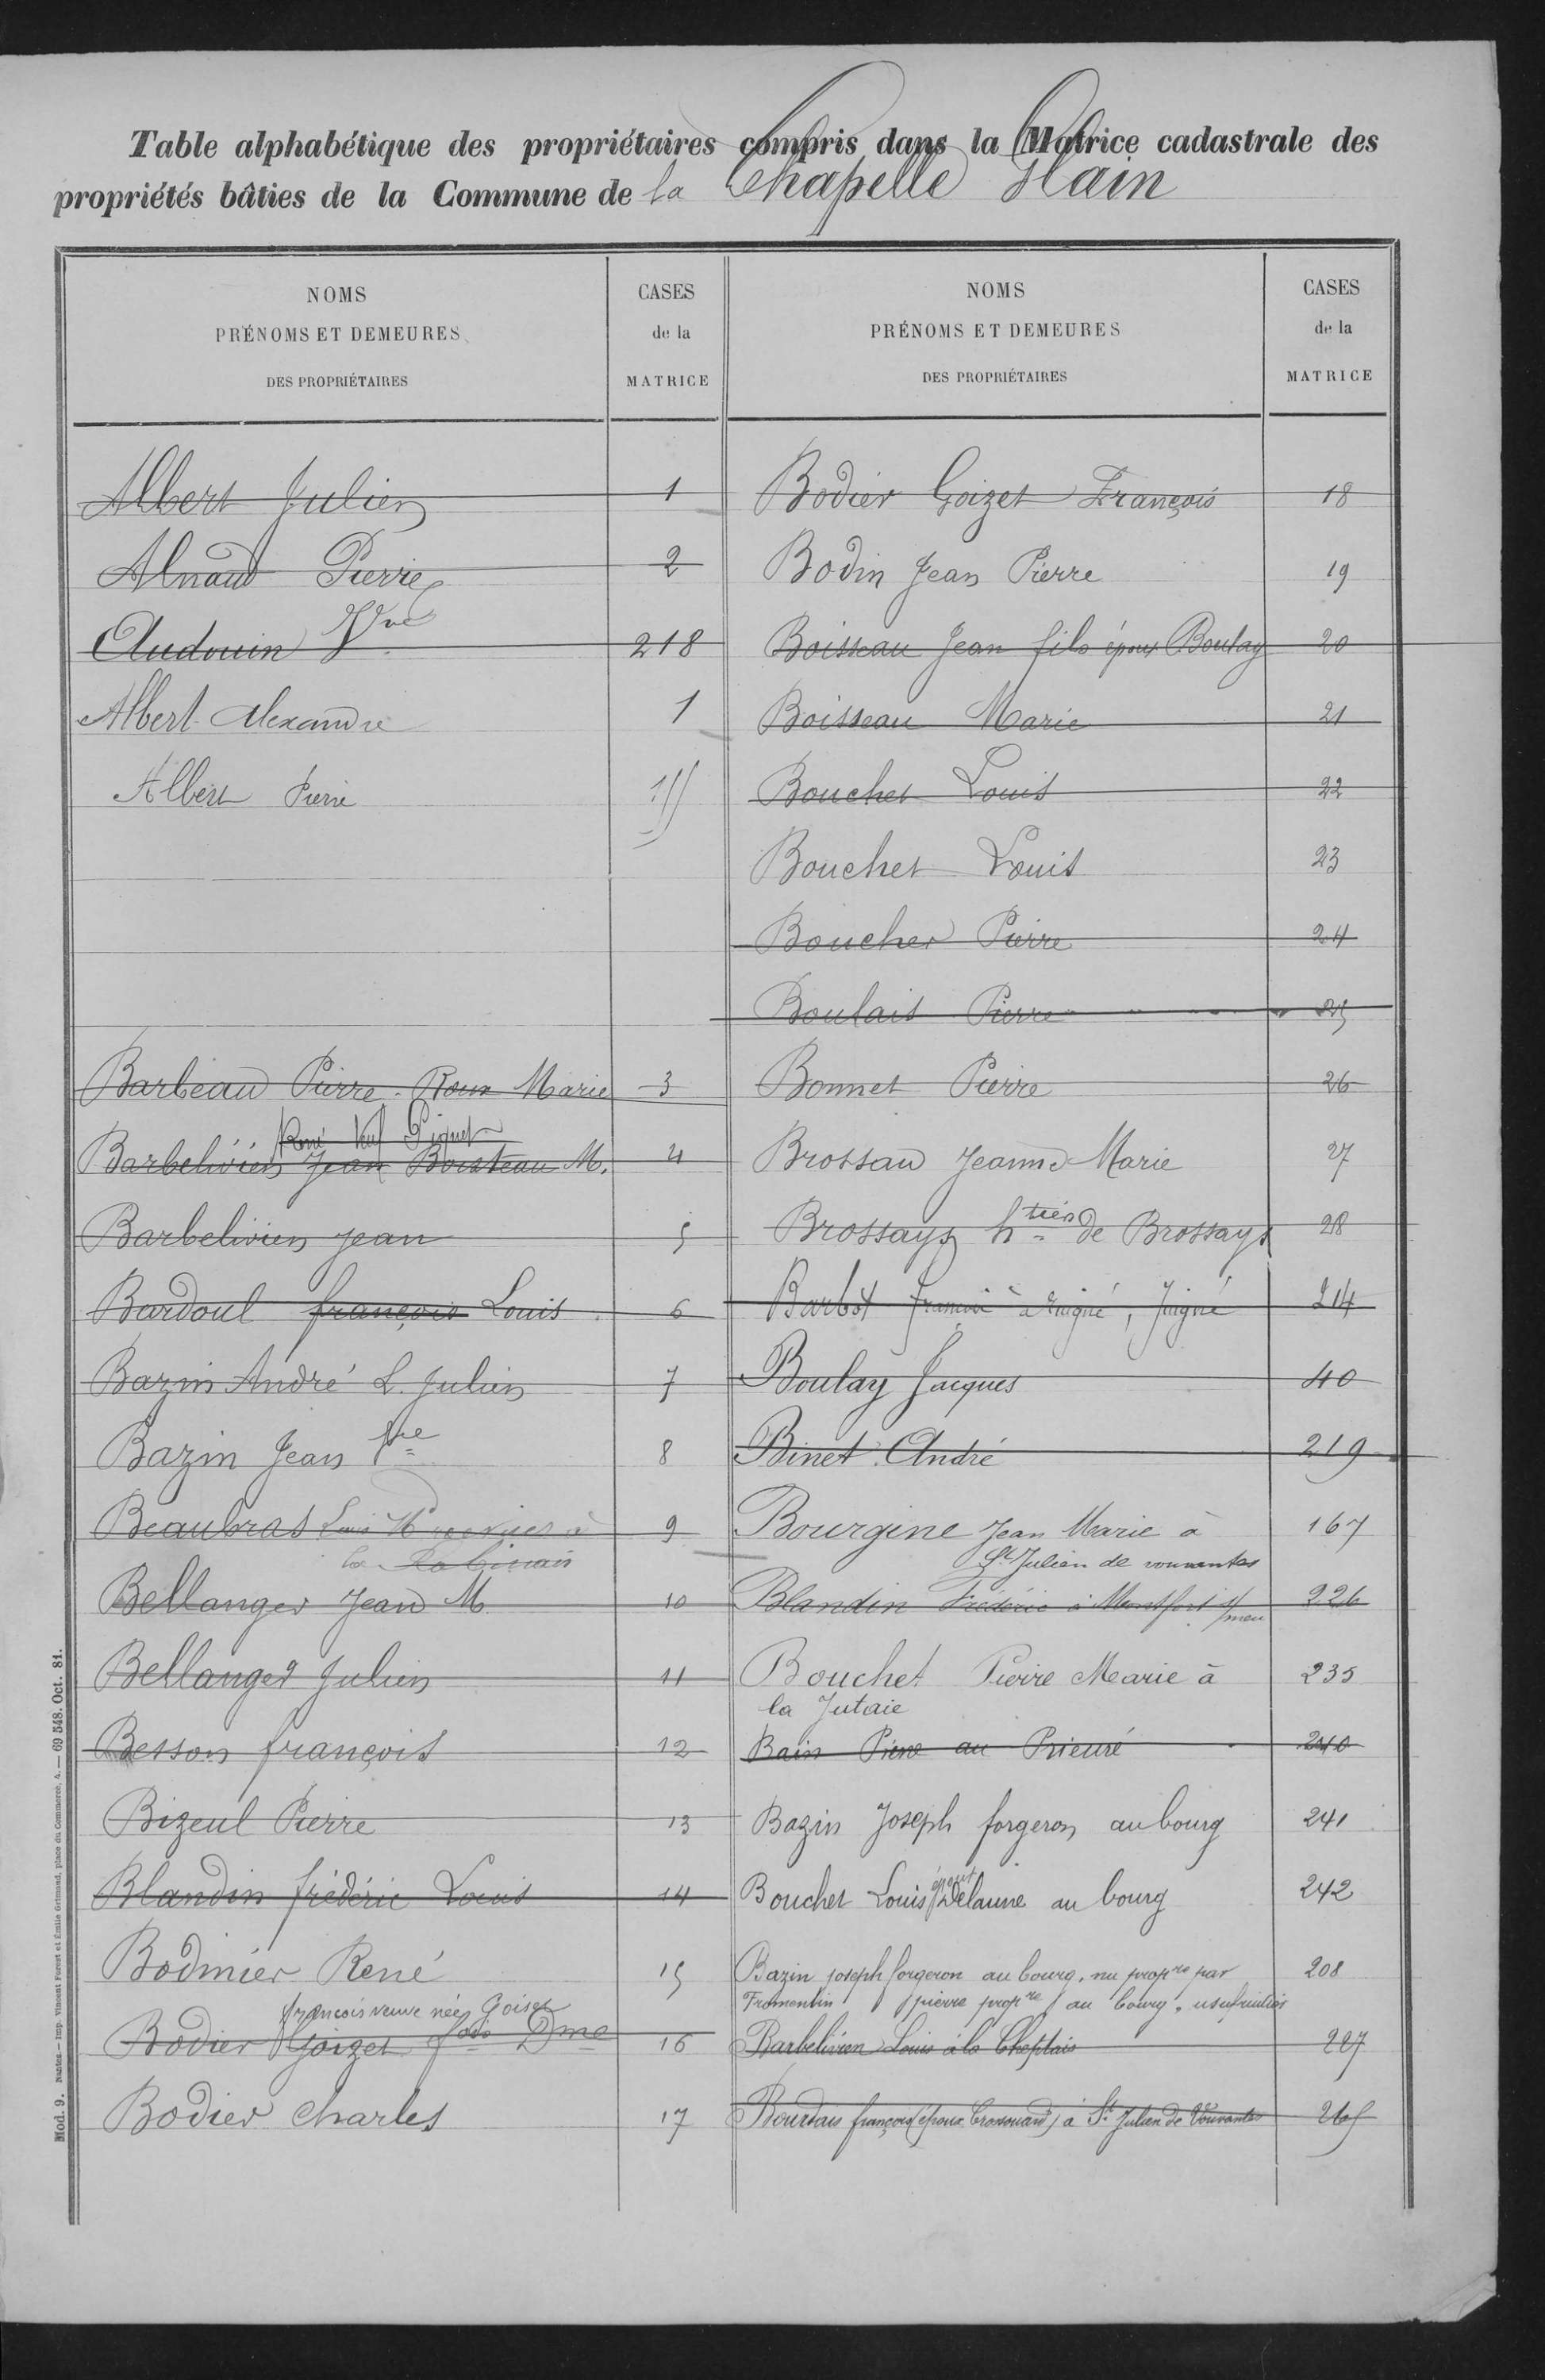 Table alphabétique des propriétaires compris dans la Matrice cadastrale des
propriétés bâties de la Commune de la Chapelle Glain
NOMS
PRÉNOMS ET DEMEURES
DES PROPRIÉTAIRES
CASES
de la
MATRICE
Albert Julien 1
Alnaud Pierre 2
Audouin Vve 218
Albert Alexandre 1
Albert Pierre
Barbeau Pierre Roux Marie 3
René Veuf Piquet
Barbelivien Jean Boisteau M. 4
Barbelivien Jean 5
Bardoul françois Louis 6
Bazin André L. Julien 7
Bazin Jean Pre 8
Beaubras Louis à 9
la Rabinais
Bellanger Jean M 10
Bellanger Julien 11
Besson françois 12
Bizeul Pierre 13
Blandin frédéric Louis 14
Bodinier René 15
françois veuve née Goiset
Bodier Goizet Dme 16
Bodier Charles 17
NOMS
PRÉNOMS ET DEMEURES
DES PROPRIÉTAIRES
CASES
de la
MATRICE
Bodier Goizet François 18
Bodin Jean Pierre 19
Boisseau Jean fils époux Boulay 20
Boisseau Marie 21
Bouchet Louis 22
Bouchet Louis 23
Boucher Pierre 24
Boulais Pierre 25
Bonnet Pierre 26
Brossau Jeanne Marie 27
Brossays htiers de Brossays 28
Barbot françois à Juigné 214
Boulay Jacques 40
Binet André 219
Bourgine Jean Marie à 167
St Julien de vouvantes
Blandin Frédéric à Montfort s/ meu 226
Bouchet Pierre Marie à 235
la Jutaie
Bain Pierre au Prieuré 240
Bazin Joseph forgeron au bourg 241
Bouchet Louis époux Delaune au bourg 242
Bazin joseph forgeron au bourg, nu propre par 208
Fromentin pierre propre au bourg, usufruitier
Barbelivien Louis à la Cheptais 227
Bourdais françois (époux Crossouard) à St Julien de Vouvantes
Mod. 9. Nantes.— Imp. Vincent Forest et Émile Grimaud, place du Commerce, 4. — 69 548. Oct. 81.